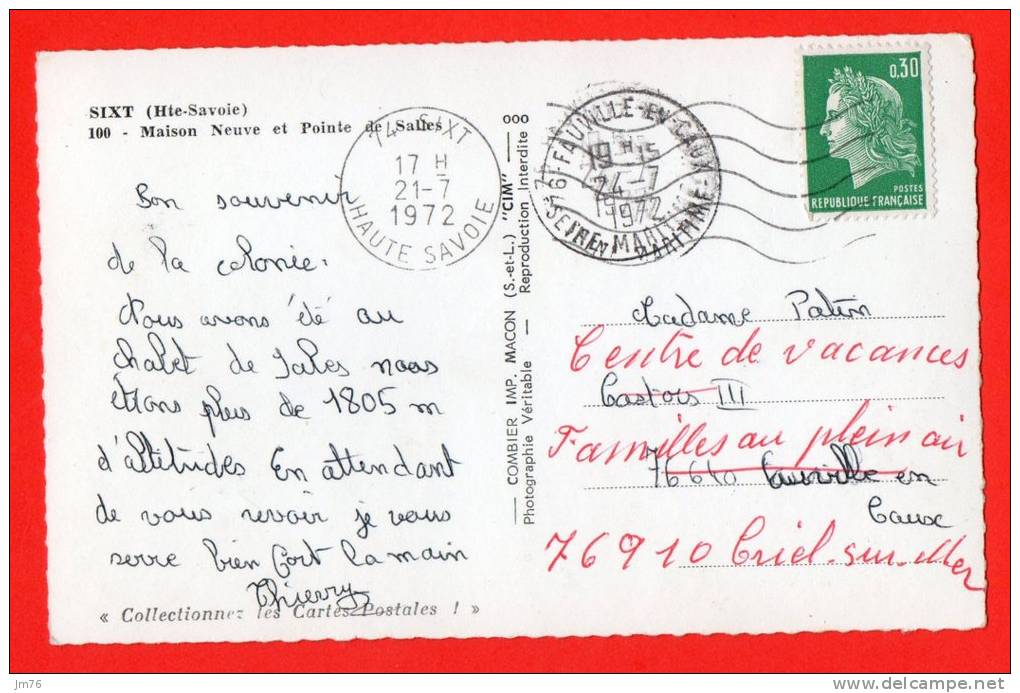 SIXT (Hte-Savoie)
100 - Maison Neuve et Pointe de Salles
Bon souvenir
de la colonie.
Nous avons été au
chalet de Sales nous
étions plus de 1805 m
d'altitudes En attendant
de vous revoir je vous
serre bien fort la main
Thierry
« Collectionnez les Cartes Postales ! »
74 SIXT
17 H
21-7
1972
HAUTE SAVOIE
COMBIER IMP. MACON (S.-et-L.) "CIM"
Photographie Véritable — Reproduction Interdite
76 FAUVILLE-EN-CAUX
19 H 15
24-7
1972
SEINE MARITIME
0,30
POSTES
REPUBLIQUE FRANÇAISE
Madame Patin
Centre de vacances
Castors III
Familles au plein air
76640 Fauville en
Caux
76910 Criel-sur-Mer
jm76
www.delcampe.net